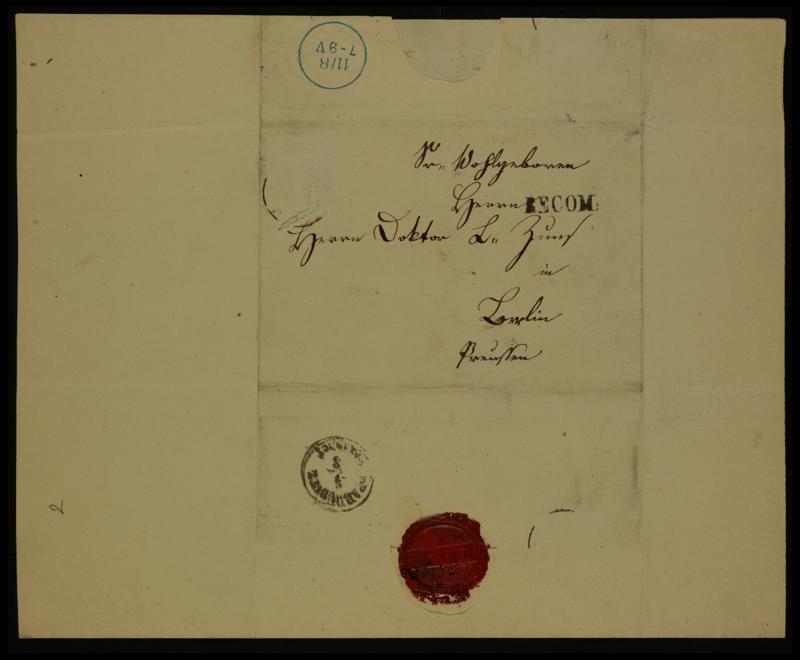 11/8
7-9V
Sr= Wohlgeboren
Herrn RECOM.
Herrn Doktor L= Zunz
in
Berlin
Preussen
PARDUBITZ
2